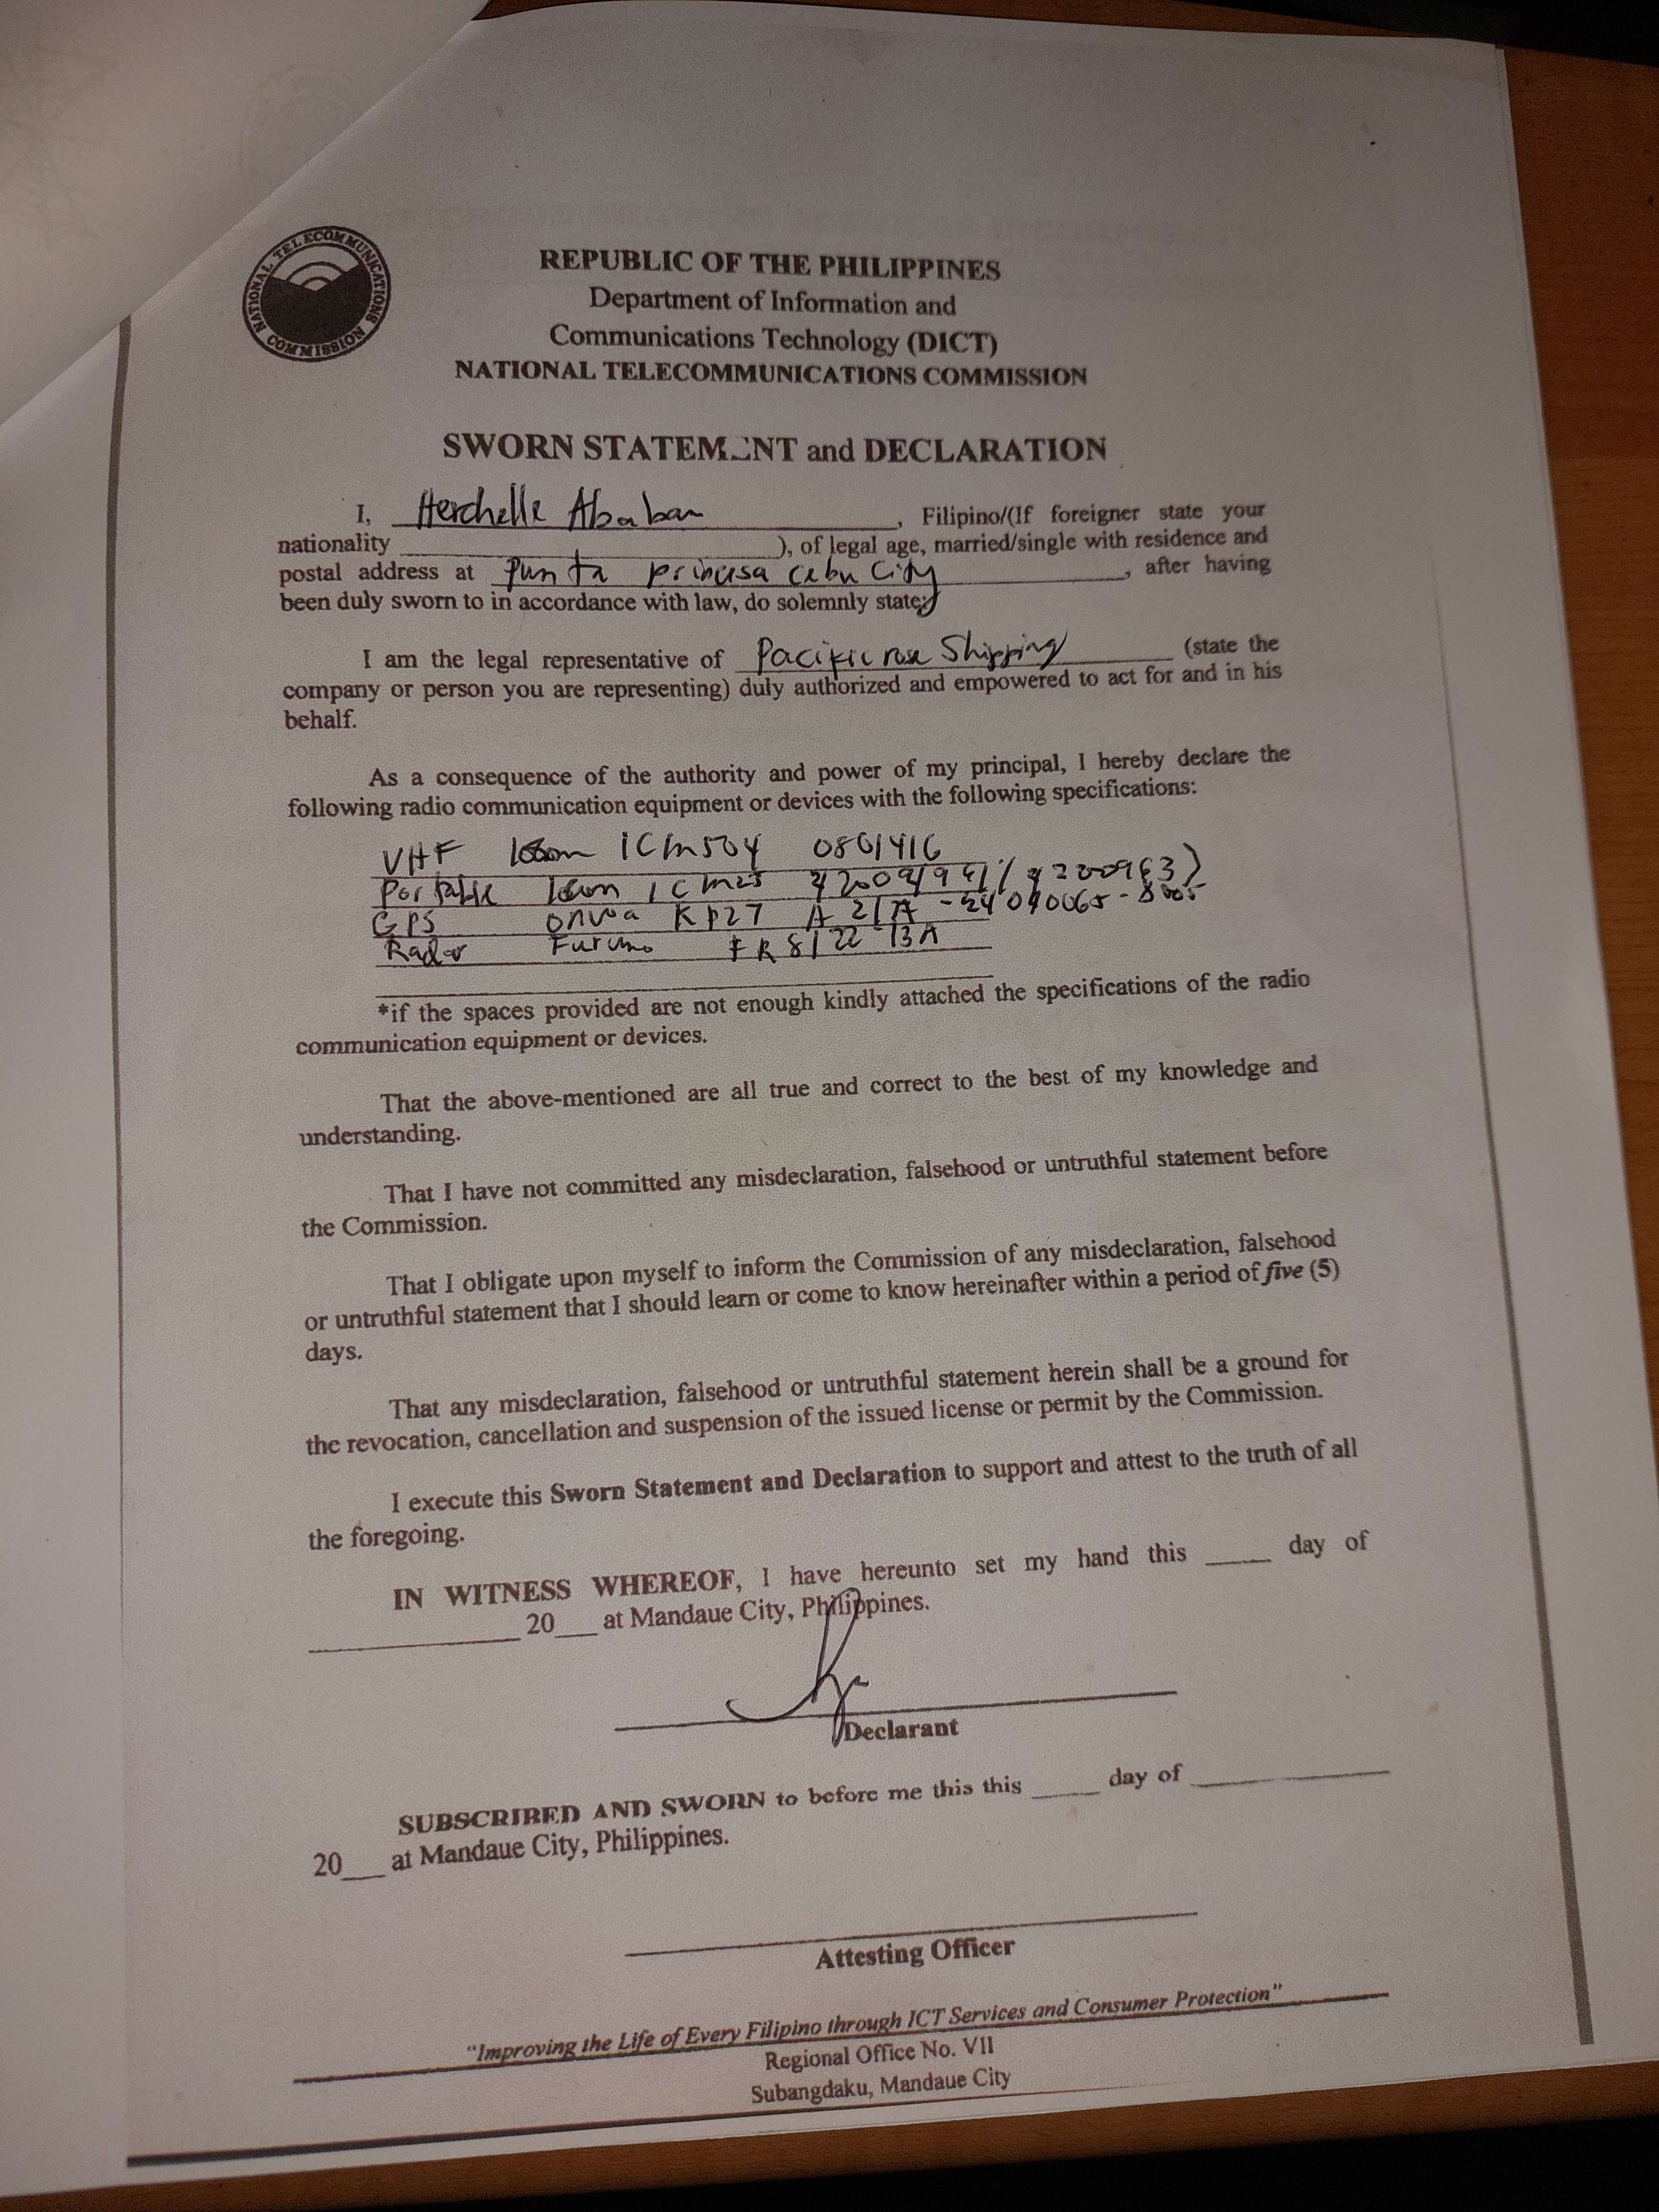 NATIONAL TELECOMMUNICATIONS COMMISSION
REPUBLIC OF THE PHILIPPINES
Department of Information and
Communications Technology (DICT)
NATIONAL TELECOMMUNICATIONS COMMISSION
SWORN STATEMENT and DECLARATION
I, Herchelle Ababan, Filipino/(If foreigner state your
nationality ), of legal age, married/single with residence and
postal address at Punta princesa Cebu City, after having
been duly sworn to in accordance with law, do solemnly state;
I am the legal representative of Pacific rose Shipping (state the
company or person you are representing) duly authorized and empowered to act for and in his
behalf.
As a consequence of the authority and power of my principal, I hereby declare the
following radio communication equipment or devices with the following specifications:
VHF Icom ICM504 0801416
Portable Icom ICM25
GPS Onwa KP27
Radar Furuno FR 8122
*if the spaces provided are not enough kindly attached the specifications of the radio
communication equipment or devices.
That the above-mentioned are all true and correct to the best of my knowledge and
understanding.
That I have not committed any misdeclaration, falsehood or untruthful statement before
the Commission.
That I obligate upon myself to inform the Commission of any misdeclaration, falsehood
or untruthful statement that I should learn or come to know hereinafter within a period of five (5)
days.
That any misdeclaration, falsehood or untruthful statement herein shall be a ground for
the revocation, cancellation and suspension of the issued license or permit by the Commission.
I execute this Sworn Statement and Declaration to support and attest to the truth of all
the foregoing.
IN WITNESS WHEREOF, I have hereunto set my hand this ____ day of
____ 20___ at Mandaue City, Philippines.
Declarant
SUBSCRIBED AND SWORN to before me this this ____ day of ____
20___ at Mandaue City, Philippines.
Attesting Officer
"Improving the Life of Every Filipino through ICT Services and Consumer Protection"
Regional Office No. VII
Subangdaku, Mandaue City